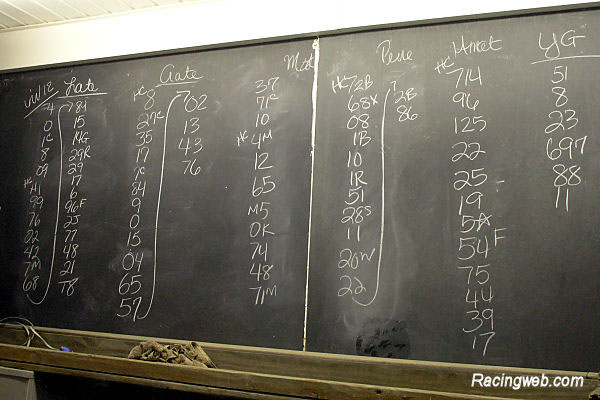 4
0
1c
8
09
HC 41
99
76
02
42
7M
68
Late
15
14G
29R
29
17
6
96F
25
77
48
21
78
HC 8
27c
35
17
7c
84
9
0
15
04
65
57
02
13
43
76
37
71c
10
HC 4M
12
65
M5
0K
74
48
71M
Pure
HC 72B
68X
08
1B
10
1R
51
28S
11
20W
22
2B
86
HC 714
96
125
22
25
19
5A
54F
75
44
39
17
YG
51
8
23
697
88
11
Racingweb.com